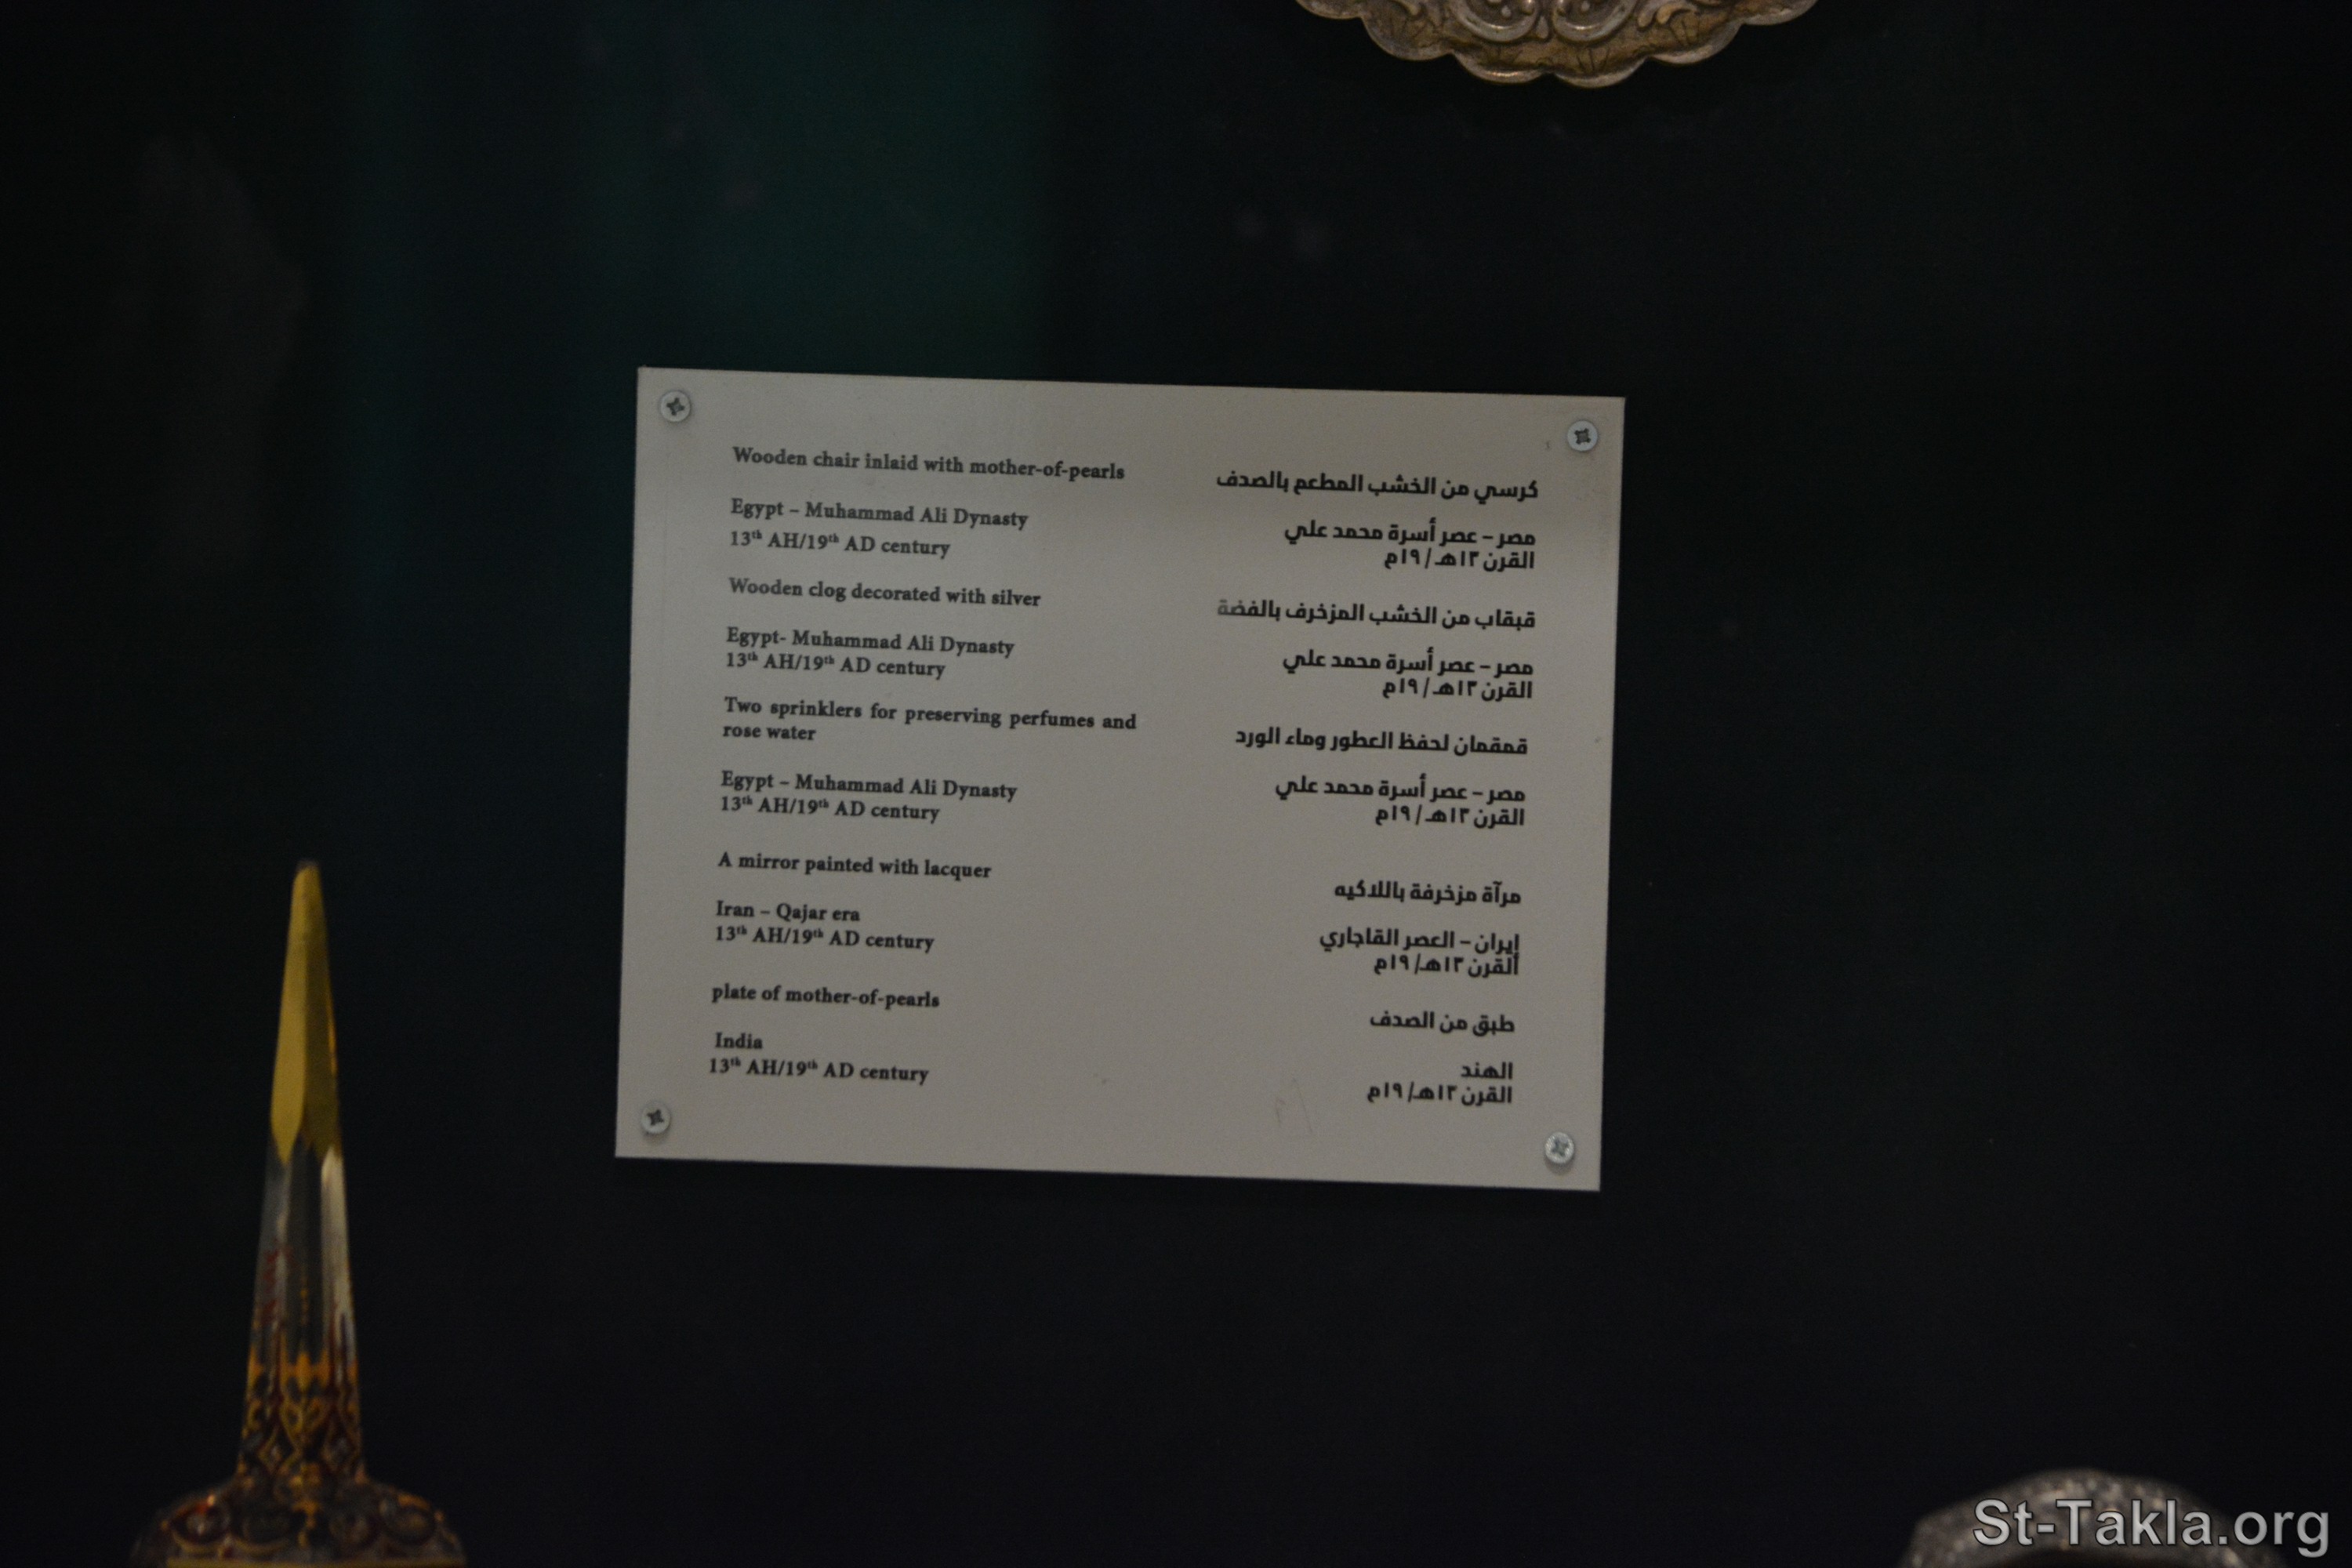 Wooden chair inlaid with mother-of-pearls
Egypt – Muhammad Ali Dynasty
13th AH/19th AD century
Wooden clog decorated with silver
Egypt- Muhammad Ali Dynasty
13th AH/19th AD century
Two sprinklers for preserving perfumes and
rose water
Egypt – Muhammad Ali Dynasty
13th AH/19th AD century
A mirror painted with lacquer
Iran – Qajar era
13th AH/19th AD century
plate of mother-of-pearls
India
13th AH/19th AD century
كرسي من الخشب المطعم بالصدف
مصر – عصر أسرة محمد علي
القرن ١٣هـ / ١٩م
قبقاب من الخشب المزخرف بالفضة
مصر – عصر أسرة محمد علي
القرن ١٣هـ / ١٩م
قمقمان لحفظ العطور وماء الورد
مصر – عصر أسرة محمد علي
القرن ١٣هـ / ١٩م
مرآة مزخرفة باللاكيه
إيران – العصر القاجاري
القرن ١٣هـ/ ١٩م
طبق من الصدف
الهند
القرن ١٣هـ/ ١٩م
St-Takla.org